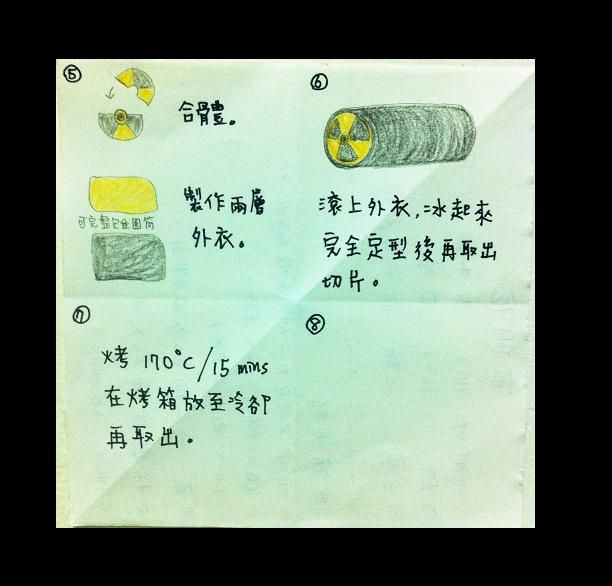 ⑤
合體。
製作兩層
可完整包住圓筒
外衣。
⑥
滾上外衣,冰起來
完全定型後再取出
切片。
⑦
烤 170°C/15 mins
在烤箱放至冷卻
再取出。
⑧